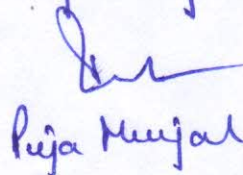 Puja Munjal